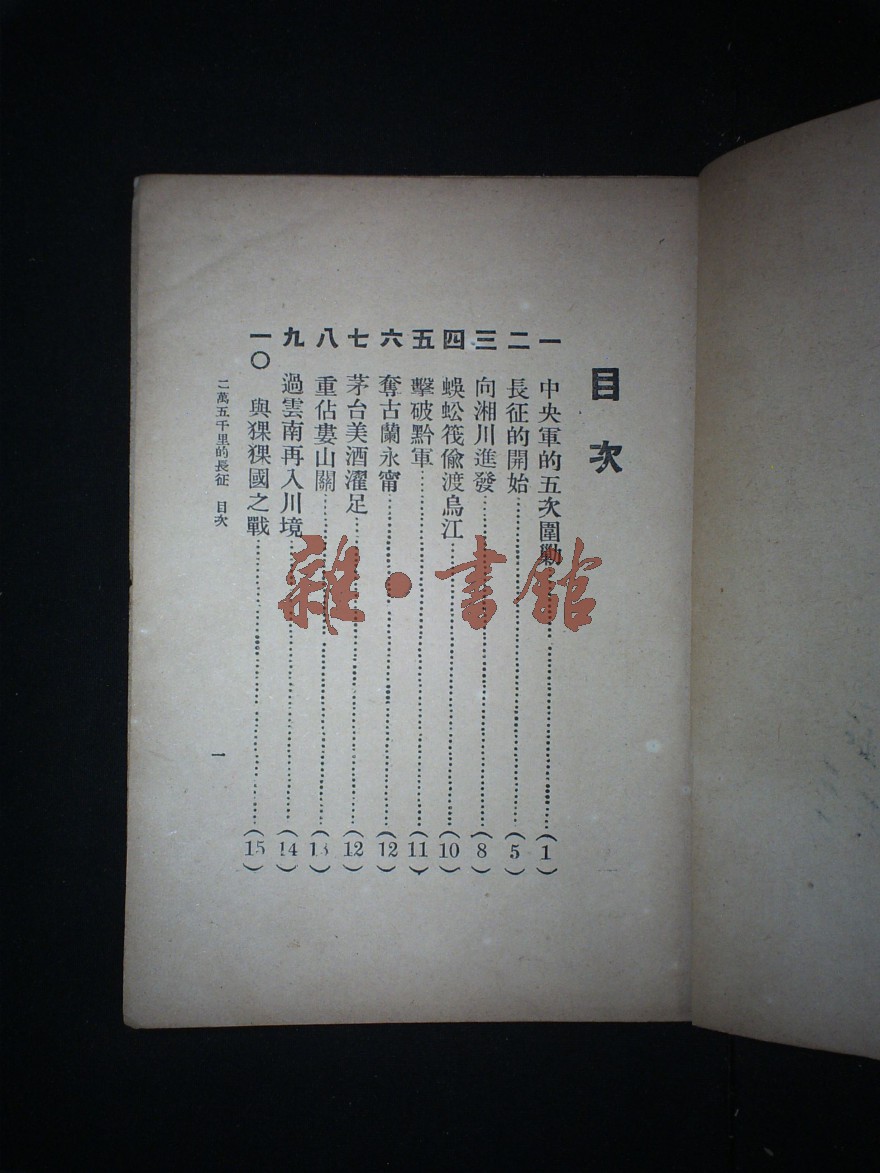 目次
一 中央軍的五次圍勦………(1)
二 長征的開始………(5)
三 向湘川進發………(8)
四 蜈蚣筏偸渡烏江………(10)
五 擊破黔軍………(11)
六 奪古蘭永甯………(12)
七 茅台美酒濯足………(12)
八 重佔婁山關………(13)
九 過雲南再入川境………(14)
一〇 與猓猓國之戰………(15)
二萬五千里的長征 目次
一
雜·書館